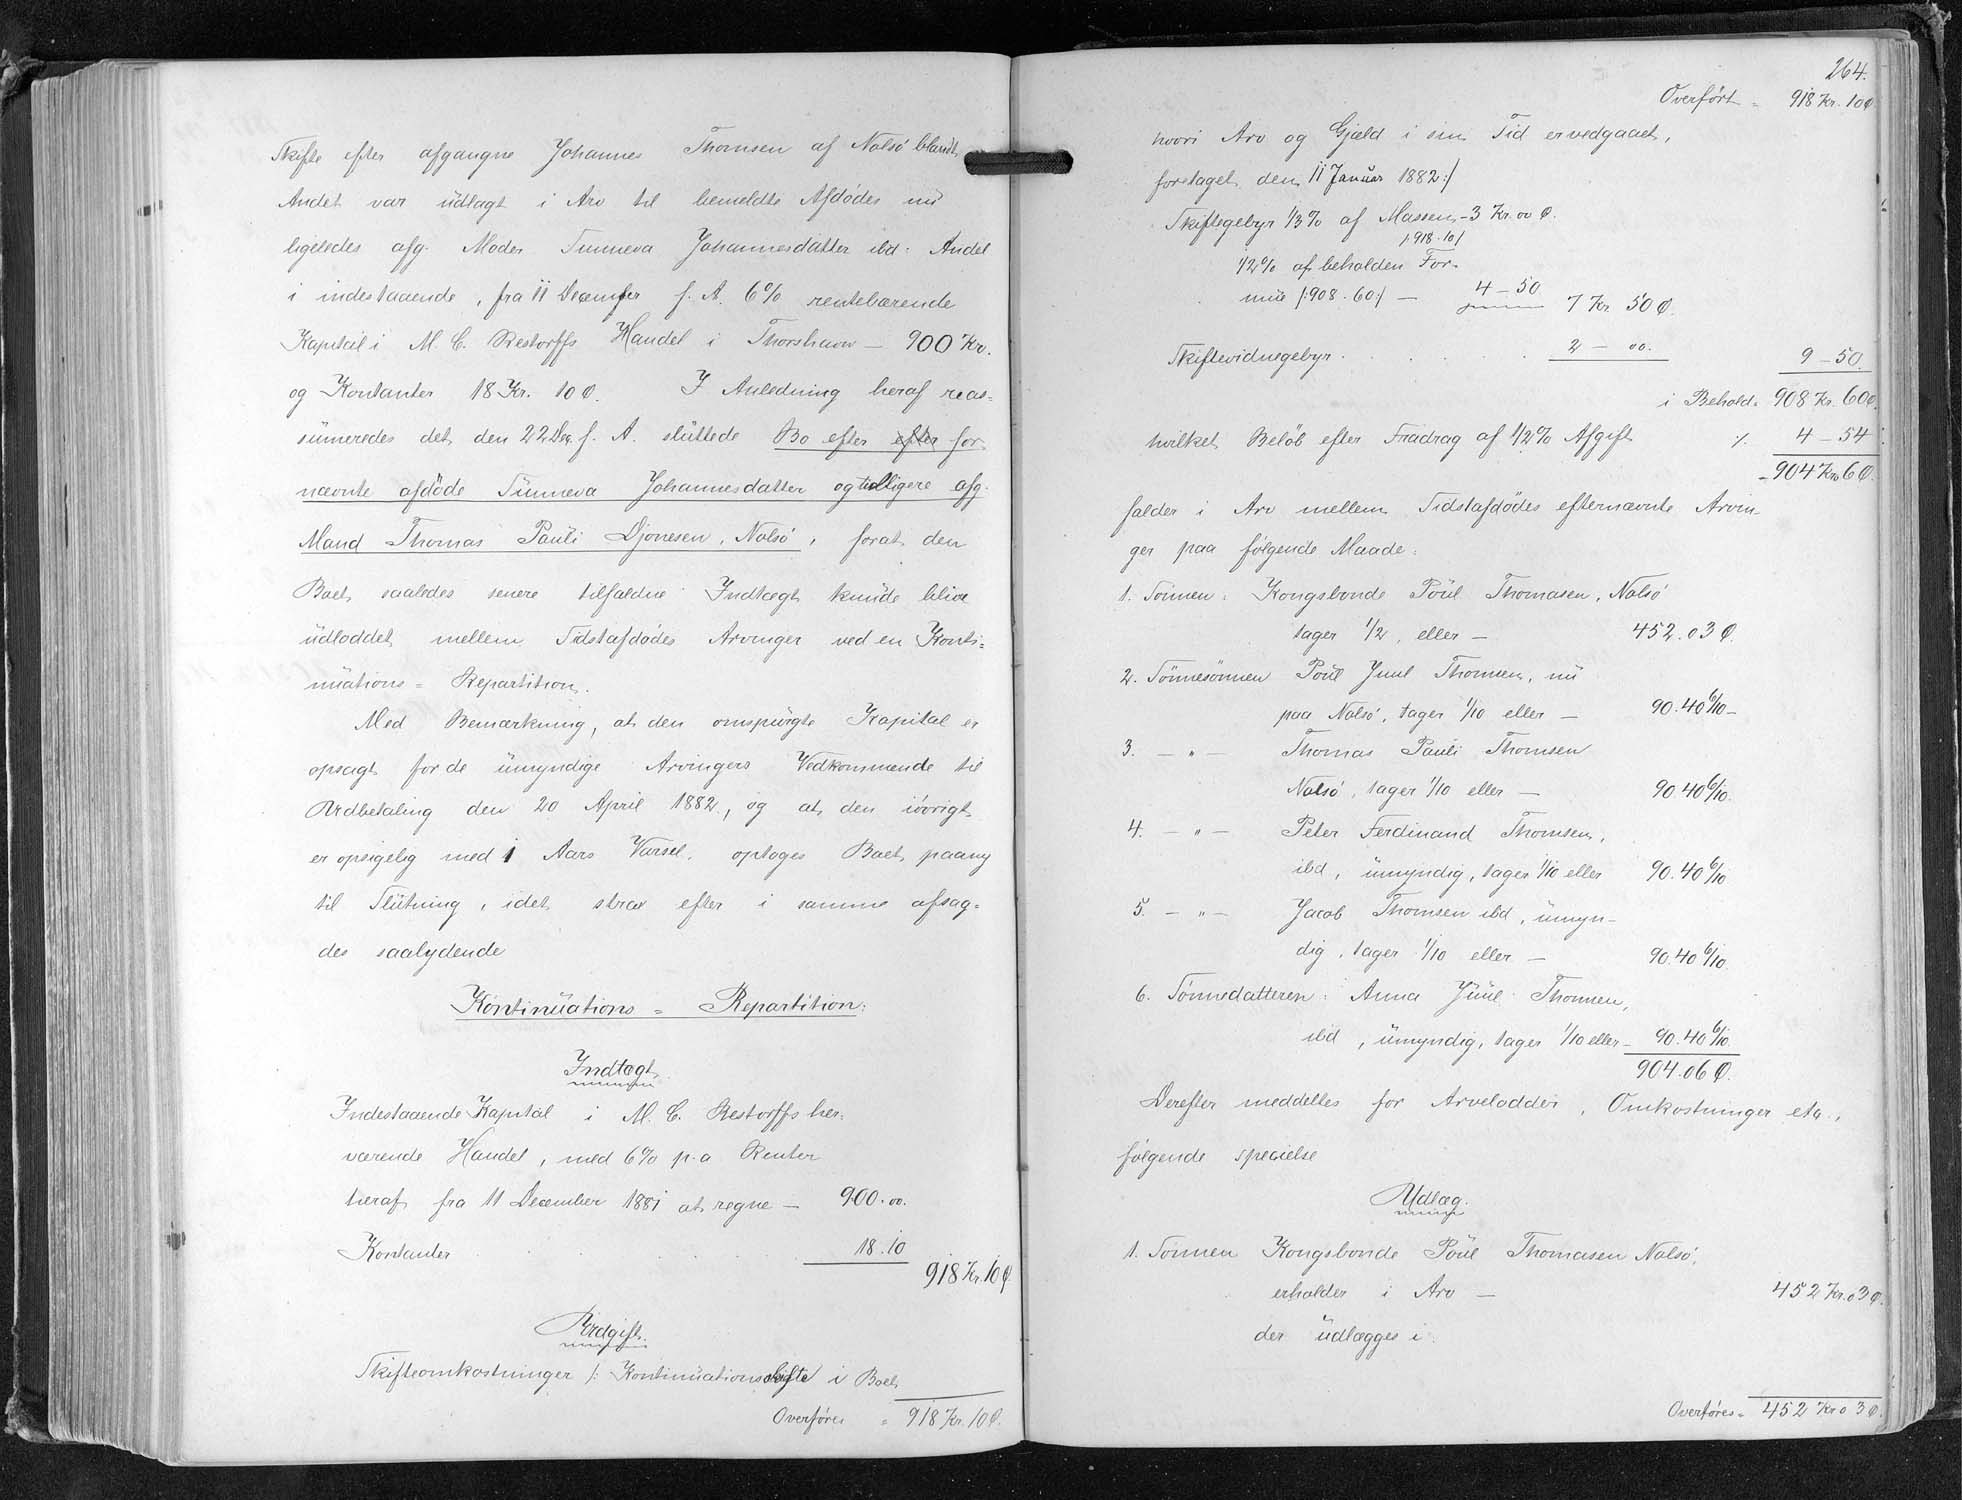 Skifte efter afgangne Johannes Thomsen af Nolsö blandt
Andet var üdlagt i Arv til bemeldte Afdödes nü
ligeledes afg. Moder Sunneva Johannesdatter ibd: Andel
i indestaaende, fra 11 December f. A. 6% rentebærende
Kapital i M. C. Restorffs Handel i Thorshavn — 900 Kr.
og Kontanter 18 Kr. 10 Ø. I Anledning heraf reas=
sümeredes det den 22 Dec. f. A. slüttede Bo efter efter for
nævnte afdöde Sünneva Johannesdatter og tidligere afg.
Mand Thomas Pauli Djonesen, Nolsö, forat den
Boet saaledes senere tilfaldne Indtægt kunde blive
üdloddet mellem Sidstafdödes Arvinger ved en Konti=
nuations = Repartition.
Med Bemærkning, at den omspurgte Kapital er
opsagt for de ümyndige Arvingers Vedkommende til
Udbetaling den 20 April 1882, og at den iövrigt
er opsigelig med 1 Aars Varsel, optoges Boet paany
til Slütning, idet strax efter i samme afsag=
des saalydende
Kontinüations = Repartition:
Indtægt.
Indestaaende Kapital i M. C. Restorffs her=
værende Handel, med 6% p.a Renter
heraf fra 11 December 1881 at regne — 900.00.
Kontanter 18.10
918 Kr. 10 Ø.
Udgift.
Skifteomkostninger /: Kontinüationsskifte i Boet
Overföres = 918 Kr. 10 Ø.
264.
Overfört = 918 Kr. 10 Ø
hvori Arv og Gjæld i sin Tid er vedgaaet,
foretaget den 11 Januar 1882:/
Skiftegebyr 1/3% af Massen - 3 Kr. 00 Ø.
/:918.10/
1/2% af beholden For-
mue /:908.60:/ — 4 — 50
7 Kr 50 Ø.
Skiftevidnegebyr. 2 — 00.
9 — 50.
i Behold = 908 Kr. 60 Ø.
hvilket Belöb efter Fradrag af 1/2% Afgift ./. 4 — 54
= 904 Kr. 6 Ø.
falder i Arv mellem Sidstafdödes efternævnte Arvin-
ger paa fölgende Maade:
1. Sönnen: Kongsbonde Poül Thomasen, Nolsö
tager 1/2, eller — 452.03 Ø.
2. Sönnesönnen Poül Juul Thomsen, nü
paa Nolsö, tager 1/10 eller — 90.40 6/10 —
3. — " — Thomas Pauli Thomsen
Nolsö, tager 1/10 eller — 90.40 6/10.
4. — " — Peter Ferdinand Thomsen,
ibd, ümyndig, tager 1/10 eller 90.40 6/10
5. — " — Jacob Thomsen ibd, ümyn-
dig, tager 1/10 eller — 90.40 6/10.
6. Sönnedatteren: Anna Jüül Thomsen,
ibd, ümyndig, tager 1/10 eller — 90.40 6/10.
904.06 Ø.
Derefter meddeltes for Arvelodder, Omkostninger etc.,
fölgende specielse
Udlæg.
1. Sönnen Kongsbonde Poül Thomasen Nolsö,
erholder i Arv — 452 Kr. 03 Ø.
der üdlægges i:
Overföres = 452 Kr 03 Ø.